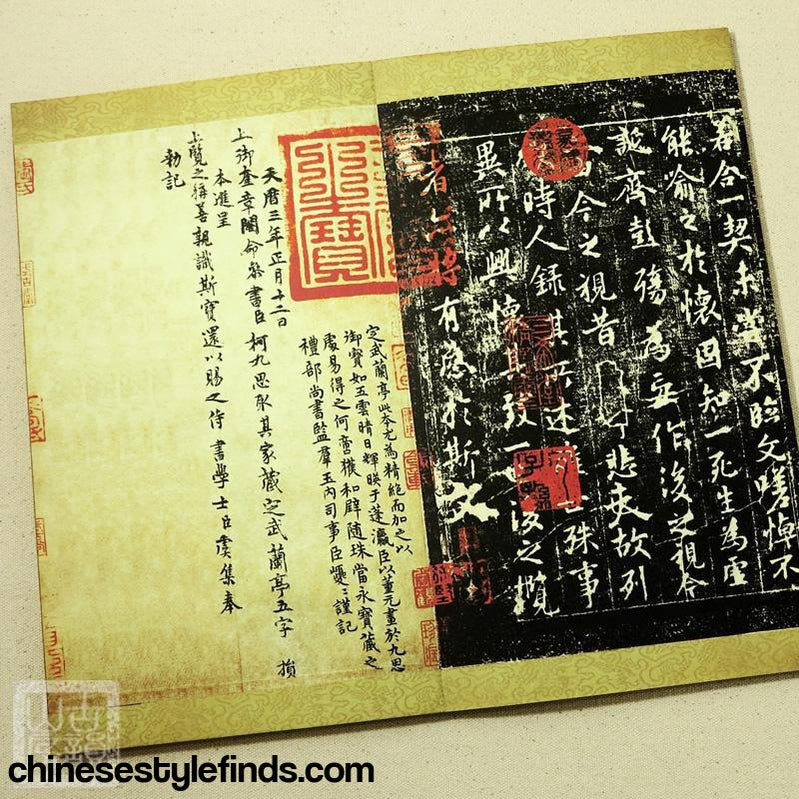 若合一契未嘗不臨文嗟悼不
能喻之於懷固知一死生為虛
誕齊彭殤為妄作後之視今
今之視昔 悲夫故列
時人錄其所述 殊事
異所以興懷其致一也後之攬
者亦將有感於斯文
定武蘭亭此本尤為精絕而加之以
御寶如五雲晴日輝映于蓬瀛臣以董元畫於九思
處易得之何啻獲和璧隨珠當永寶藏之
禮部尚書監羣玉內司事臣巙〻謹記
天曆三年正月十二日
上御奎章閣命參書臣柯九思取其家藏定武蘭亭五字損
本進呈
上覽之稱善親識斯寶還以賜之侍書學士臣虞集奉
勑記
chinesestylefinds.com